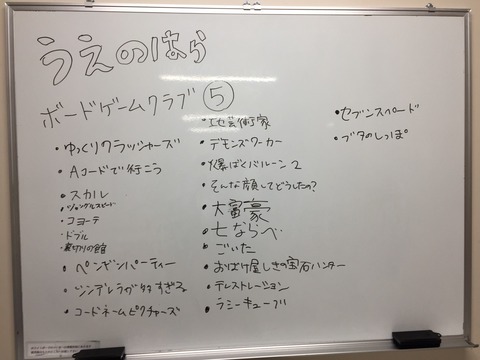 うえのはら
ボードゲームクラブ⑤
・ゆっくりクラッシャーズ
・Aコードで行こう
・スカル
・ジャングルスピード
・コヨーテ
・ドブル
・裏切りの館
・ペンギンパーティー
・ツンデレラがタタすぎる
・コードネームピクチャーズ
・エセ芸術家
・デモンズワーカー
・爆ばくバルーン2
・そんな顔してどうしたの?
・大富豪
・七ならべ
・ごいた
・おばけ屋しきの宝石ハンター
・テレストレーション
・ラミーキューブ
・セブンスペード
・ブタのしっぽ